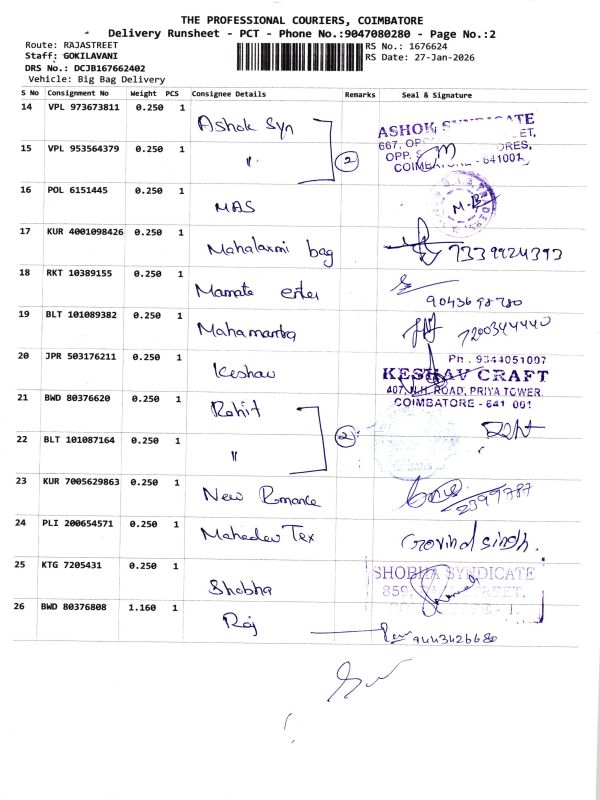 THE PROFESSIONAL COURIERS, COIMBATORE
Delivery Runsheet - PCT - Phone No.:9047080280 - Page No.:2
Route: RAJASTREET
RS No.: 1676624
Staff: GOKILAVANI
RS Date: 27-Jan-2026
DRS No.: DCJB167662402
Vehicle: Big Bag Delivery
S No Consignment No Weight PCS Consignee Details Remarks Seal & Signature
14 VPL 973673811 0.250 1 Ashok Syn ASHOK SYNDICATE
667, OPP. 
15 VPL 953564379 0.250 1 " 2 COIMBATORE - 641001
16 POL 6151445 0.250 1 MAS
17 KUR 4001098426 0.250 1 Mahalaxmi bag 7339924393
18 RKT 10389155 0.250 1 Mamate enter 9043698780
19 BLT 101089382 0.250 1 Mahamantra 7200344440
20 JPR 503176211 0.250 1 Keshav Ph : 9344051007
KESHAV CRAFT
407, N.H. ROAD, PRIYA TOWER
COIMBATORE - 641 001
21 BWD 80376620 0.250 1 Rohit
22 BLT 101087164 0.250 1 " 2
23 KUR 7005629863 0.250 1 New Romance 2399787
24 PLI 200654571 0.250 1 Mahadev Tex Govind singh.
25 KTG 7205431 0.250 1 Shobha SHOBHA SYNDICATE
859,
26 BWD 80376808 1.160 1 Raj 9443426680